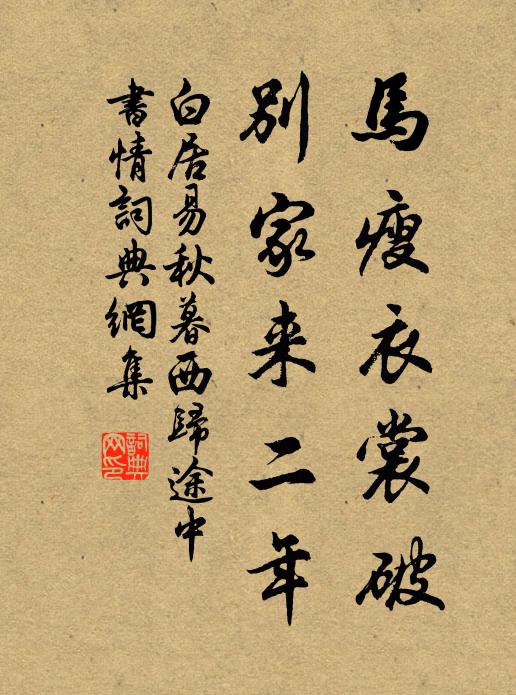 馬瘦衣裳破
別家来二年
白居易秋暮西歸途中
書情詞典網集
詞典
网印